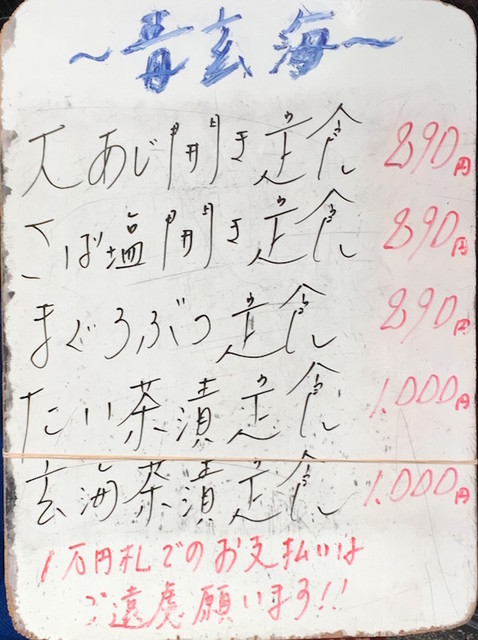 ～青玄海～
大あじ開き定食 890円
さば塩開き定食 890円
まぐろぶつ定食 890円
たい茶漬定食 1.000円
玄海茶漬定食 1.000円
1万円札でのお支払いは
ご遠慮願います!!